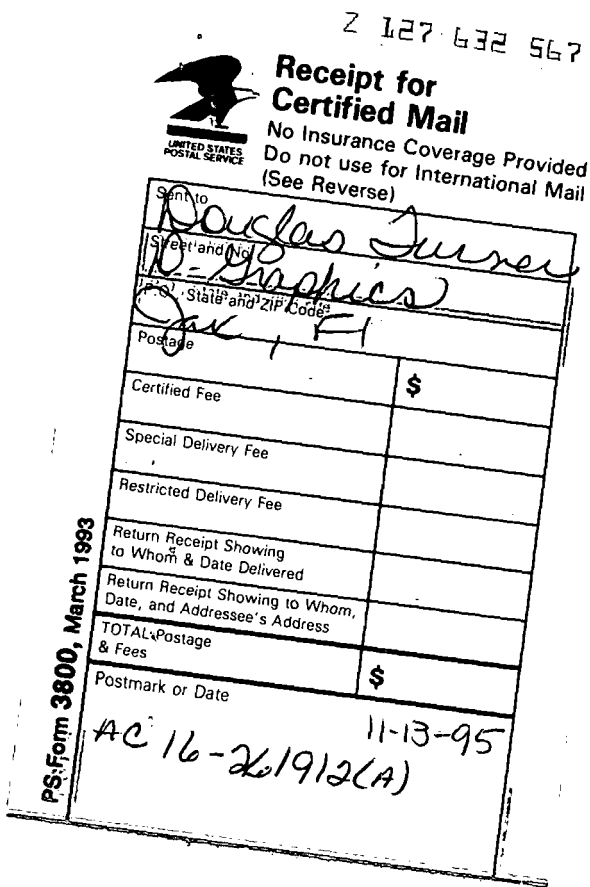 Z 127 632 567
Receipt for
Certified Mail
No Insurance Coverage Provided
Do not use for International Mail
(See Reverse)
UNITED STATES
POSTAL SERVICE
Sent to
Douglas Turner
Street and No.
D-Graphics
P.O., State and ZIP Code
Jax, Fl
Postage
$
Certified Fee
Special Delivery Fee
Restricted Delivery Fee
Return Receipt Showing
to Whom & Date Delivered
Return Receipt Showing to Whom,
Date, and Addressee's Address
TOTAL Postage
& Fees
$
Postmark or Date
11-13-95
AC 16-261912(A)
PS Form 3800, March 1993